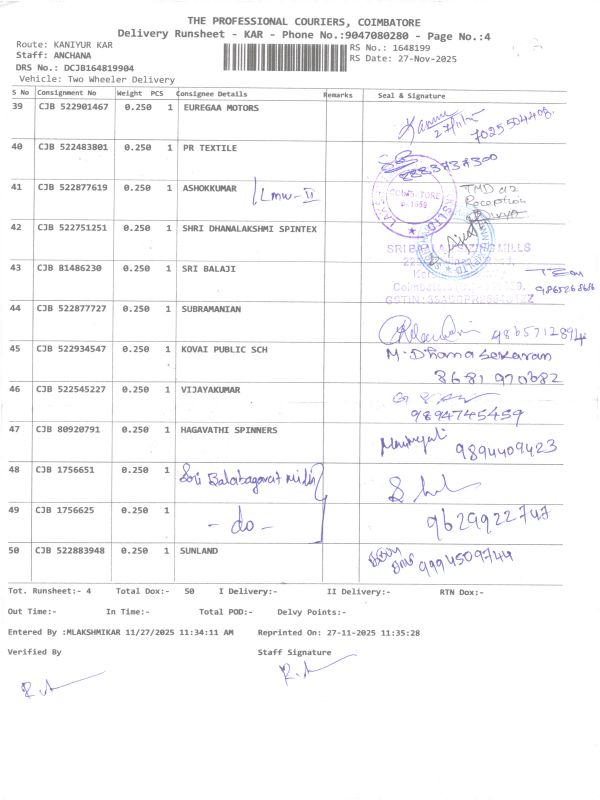 THE PROFESSIONAL COURIERS, COIMBATORE
Delivery Runsheet - KAR - Phone No.:9047080280 - Page No.:4
Route: KANIYUR KAR
RS No.: 1648199
Staff: ANCHANA
RS Date: 27-Nov-2025
DRS No.: DCJB164819904
Vehicle: Two Wheeler Delivery
S No Consignment No Weight PCS Consignee Details Remarks Seal & Signature
39 CJB 522901467 0.250 1 EUREGAA MOTORS
27/11/25 7025504408
40 CJB 522483801 0.250 1 PR TEXTILE
8883737300
41 CJB 522877619 0.250 1 ASHOKKUMAR Lmw-II
TMD a2
Reception
Divya
42 CJB 522751251 0.250 1 SHRI DHANALAKSHMI SPINTEX
SRI BALAJI MILLS
43 CJB 81486230 0.250 1 SRI BALAJI
9865268686
Coimbatore
44 CJB 522877727 0.250 1 SUBRAMANIAN
9865712894
45 CJB 522934547 0.250 1 KOVAI PUBLIC SCH
M. Dhanasekaran
8681 970682
46 CJB 522545227 0.250 1 VIJAYAKUMAR
9894745459
47 CJB 80920791 0.250 1 HAGAVATHI SPINNERS
9894409423
48 CJB 1756651 0.250 1 Sri Balabagavat mills
49 CJB 1756625 0.250 1 - do -
9629922747
50 CJB 522883948 0.250 1 SUNLAND
9994509744
Tot. Runsheet:- 4 Total Dox:- 50 I Delivery:- II Delivery:- RTN Dox:-
Out Time:- In Time:- Total POD:- Delvy Points:-
Entered By :MLAKSHMIKAR 11/27/2025 11:34:11 AM Reprinted On: 27-11-2025 11:35:28
Verified By Staff Signature